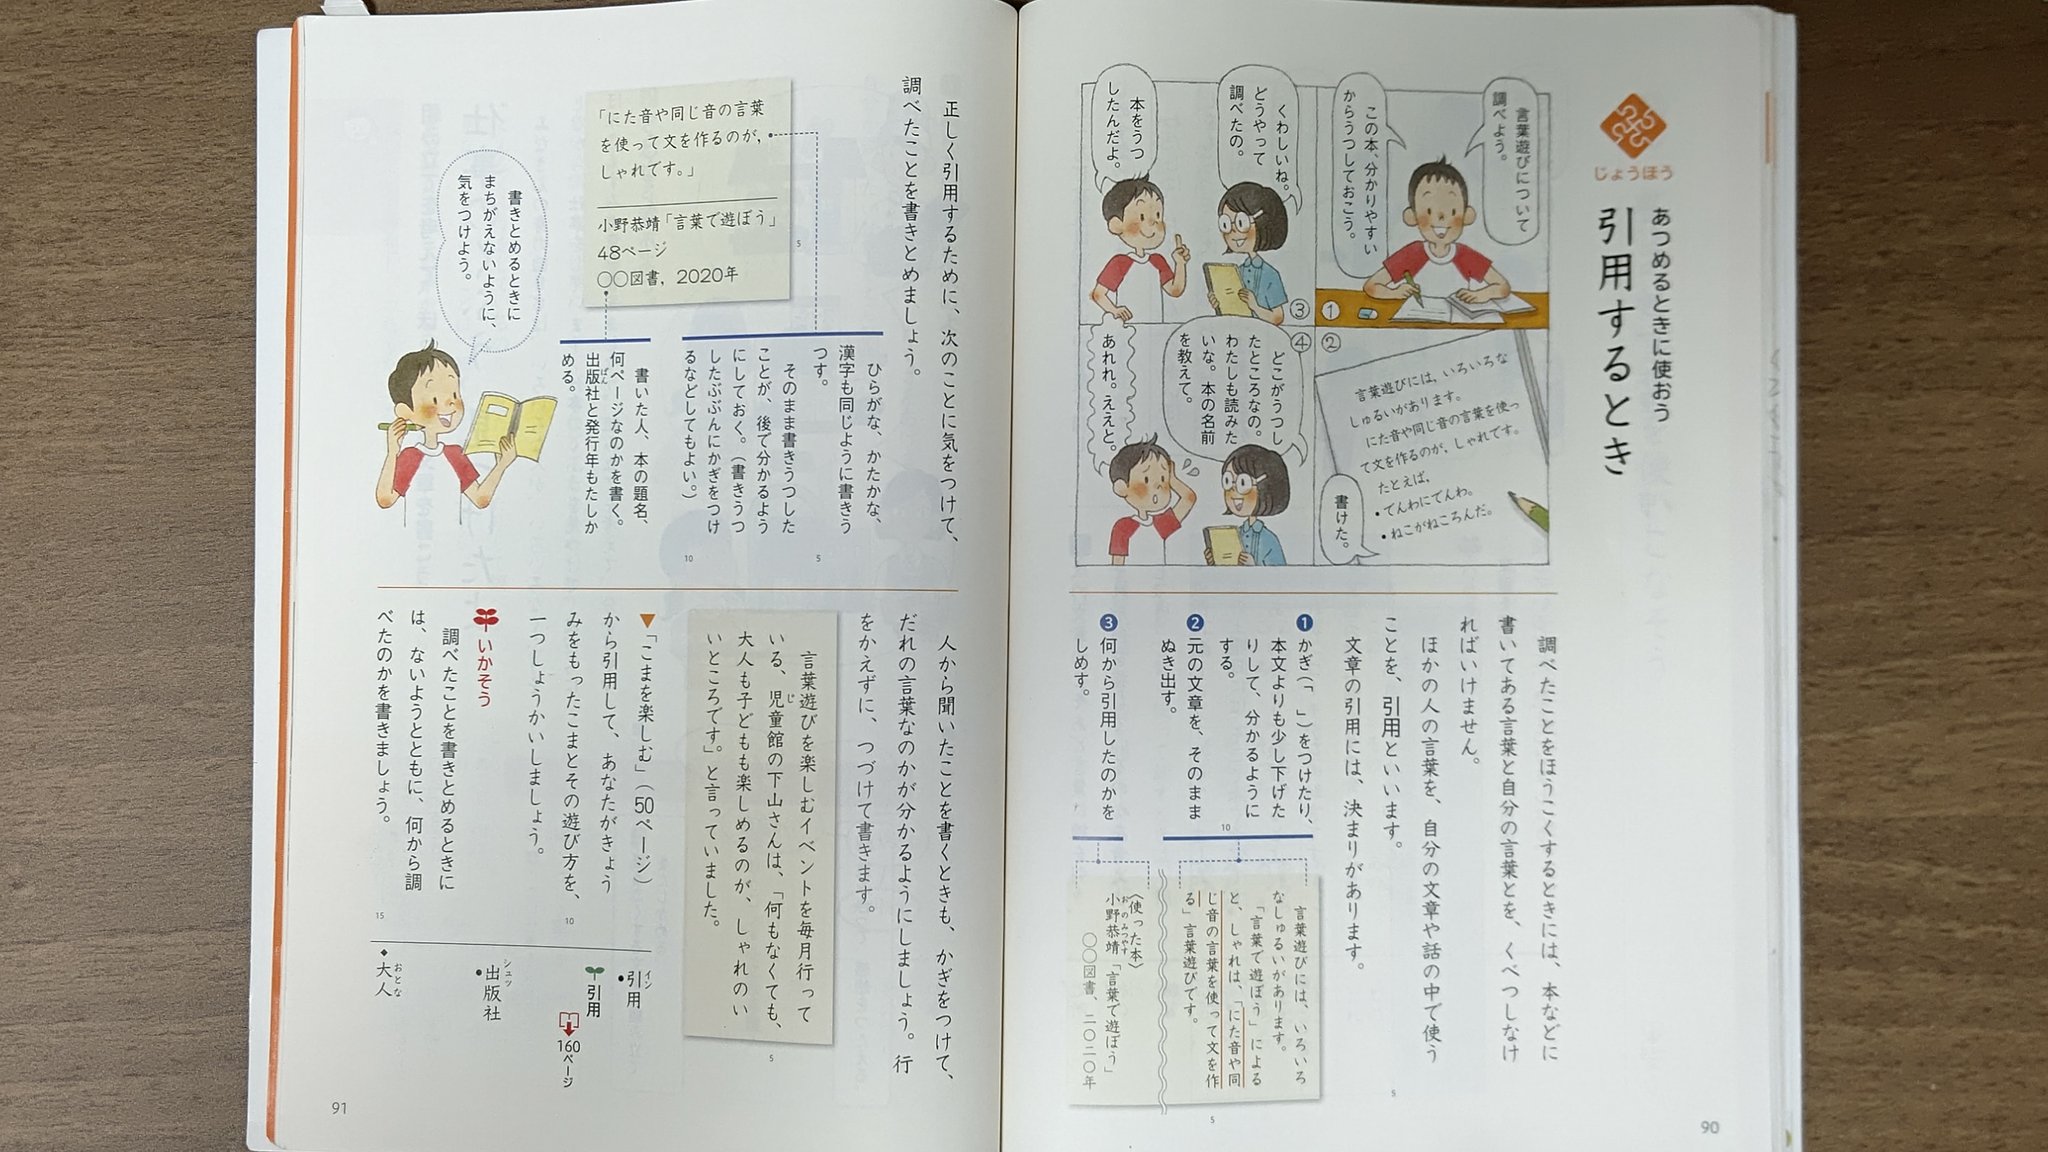 じょうほう
あつめるときに使おう
引用するとき
言葉遊びについて
調べよう。
この本、分かりやすい
からうつしておこう。
①
②
言葉遊びには，いろいろな
しゅるいがあります。
にた音や同じ音の言葉を使っ
て文を作るのが，しゃれです。
たとえば，
・でんわにでんわ。
・ねこがねころんだ。
書けた。
③
くわしいね。
どうやって
調べたの。
本をうつ
したんだよ。
④
どこがうつし
たところなの。
わたしも読みた
いな。本の名前
を教えて。
あれれ。ええと。
調べたことをほうこくするときには、本などに
書いてある言葉と自分の言葉とを、くべつしなけ
ればいけません。
ほかの人の言葉を、自分の文章や話の中で使う
ことを、引用といいます。
文章の引用には、決まりがあります。
5
❶かぎ（「　」）をつけたり、
本文よりも少し下げた
りして、分かるように
する。
10
❷元の文章を、そのまま
ぬき出す。
❸何から引用したのかを
しめす。
言葉遊びには、いろいろ
なしゅるいがあります。
「言葉で遊ぼう」による
と、しゃれは、「にた音や同
じ音の言葉を使って文を作
る」言葉遊びです。
5
〈使った本〉
小野恭靖「言葉で遊ぼう」
おのみつやす
〇〇図書、二〇二〇年
90
正しく引用するために、次のことに気をつけて、
調べたことを書きとめましょう。
「にた音や同じ音の言葉
を使って文を作るのが，
しゃれです。」
小野恭靖「言葉で遊ぼう」
48ページ
〇〇図書，2020年
5
ひらがな、かたかな、
漢字も同じように書きう
つす。
そのまま書きうつした
ことが、後で分かるよう
にしておく。（書きうつ
したぶぶんにかぎをつけ
るなどしてもよい。）
5
10
書いた人、本の題名、
何ページなのかを書く。
出版社と発行年もたしか
ぱん
める。
書きとめるときに
まちがえないように、
気をつけよう。
人から聞いたことを書くときも、かぎをつけて、
だれの言葉なのかが分かるようにしましょう。行
をかえずに、つづけて書きます。
言葉遊びを楽しむイベントを毎月行って
いる、児童館の下山さんは、「何もなくても、
じ
大人も子どもも楽しめるのが、しゃれのい
いところです」と言っていました。
5
▼「こまを楽しむ」（50ページ）
から引用して、あなたがきょう
みをもったこまとその遊び方を、
一つしょうかいしましょう。
10
いかそう
調べたことを書きとめるときに
は、ないようとともに、何から調
べたのかを書きましょう。
15
・引用
イン
引用
160ページ
・出版社
シュッ
◆大人
おとな
91